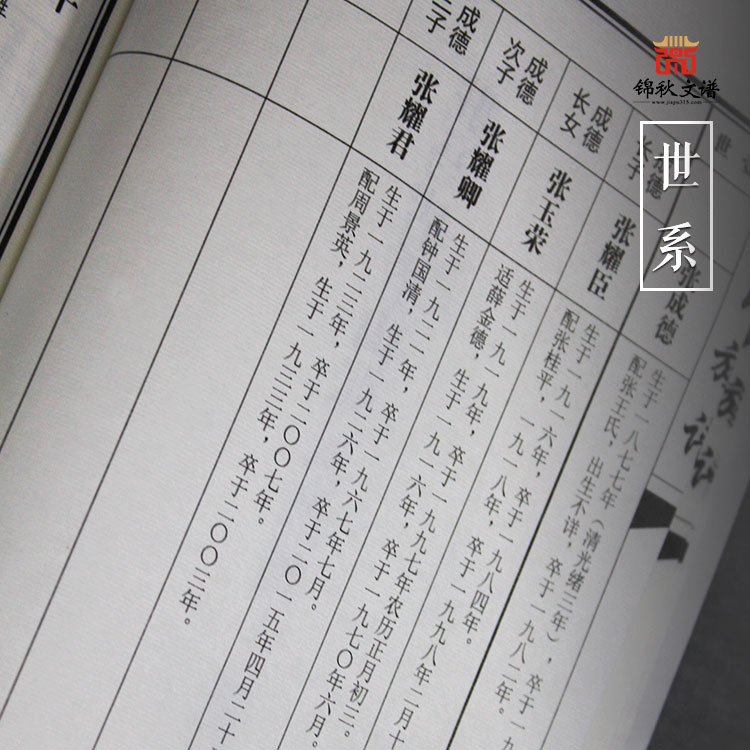 锦秋文谱
www.jiapu315.com
世系
族谱
世
张成德
生于一八七七年（清光绪三年），卒于一九
配张王氏，出生不详，卒于一九八二年。
成德
长子
张耀臣
生于一九一六年，卒于一九八四年。
配张桂平，一九一八年，卒于一九九八年二月十
成德
长女
张玉荣
生于一九一九年，卒于一九九七年农历正月初三。
适薛金德，生于一九一六年，卒于一九七〇年六月。
成德
次子
张耀卿
生于一九二一年，卒于一九六七年七月。
配钟国清，生于一九二六年，卒于二〇一五年四月二十
成德
三子
张耀君
生于一九二三年，卒于二〇〇七年。
配周景英，生于一九三三年，卒于二〇〇三年。